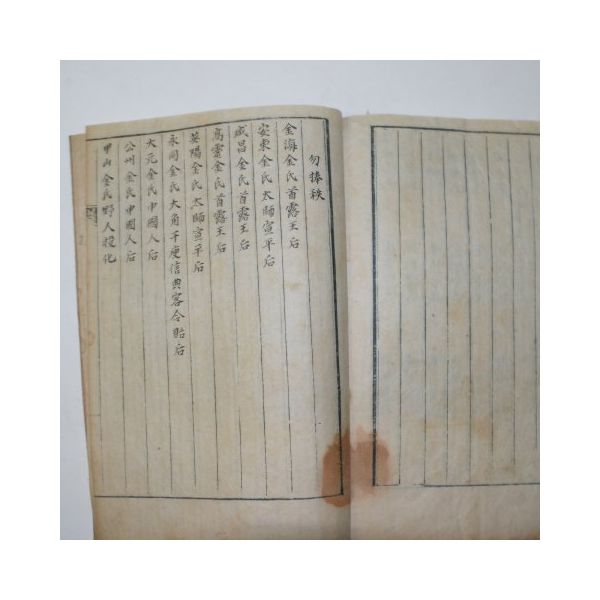 勿捧秩
金海金氏首露王后
安東金氏太師宣平后
咸昌金氏首露王后
高靈金氏首露王后
英陽金氏太師宣平后
永同金氏大角干庾信典客令貽后
大元金氏中國人后
公州金氏中國人后
甲山金氏野人投化